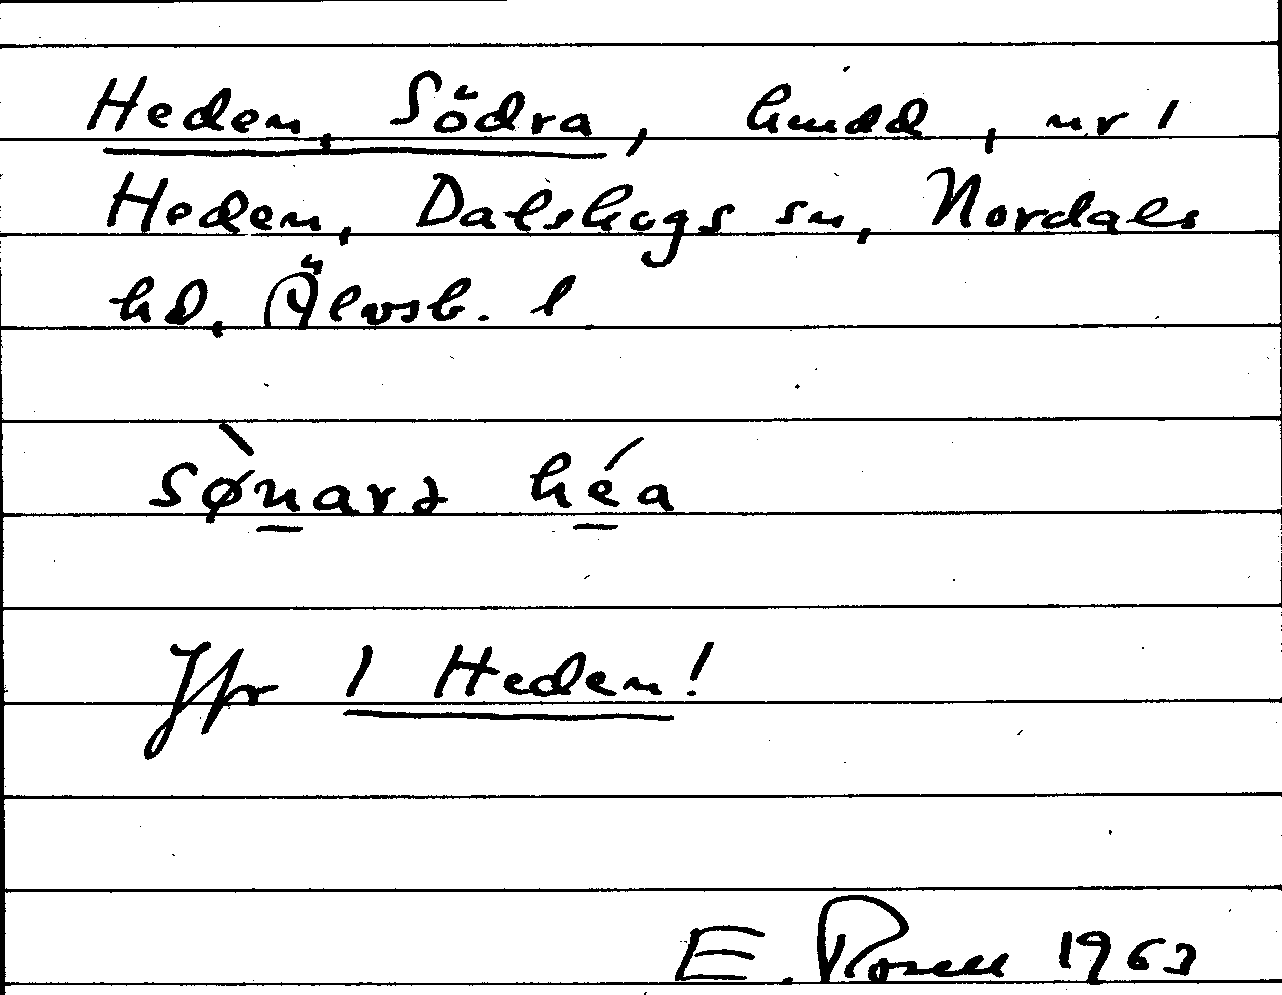 Heden, Södra, hmdd, nr 1
Heden, Dalskogs sn, Nordals
hd, Älvsb. l
sø̀narə héa
Jfr 1 Heden!
E. Rosell 1963